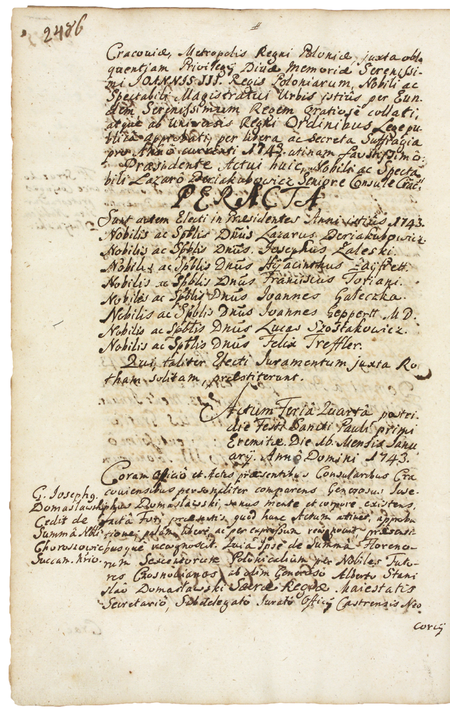 2486
Cracoviæ, Metropolis Regni Poloniæ juxta
quentiam Privilegij Divæ Memoriæ Serenissi-
mi IOANNIS III. Regis Poloniarum, Nobili ac
Spectabili Magistratui Urbis istius per Eun-
dem Serenissimum Regem Gratiose collati,
atque ab Universis Regni Ordinibus
approbati, per libera ac Secreta Suffragia
pro Anno currenti 1743. utinam Faustissimo.
Præsidente Actui huic, Nobili ac Specta
bili Lazaro Deriakubowicz Seniore Consule
PERACTA
Sunt autem Electi in Præsidentes Anni istius 1743.
Nobilis ac Spblis Dnus Lazarus Deriakubowicz
Nobilis ac Spblis Dnus Josephus Zaleski.
Nobilis ac Spblis Dnus Hyacinthus
Nobilis ac Spblis Dnus Franciscus Toriani.
Nobilis ac Spblis Dnus Joannes
Nobilis ac Spblis Dnus Joannes Geppert M.D.
Nobilis ac Spblis Dnus Lucas Szostakowicz.
Nobilis ac Spblis Dnus Felix Treffler.
Qui taliter Electi Juramentum juxta Ro
tham solitam præstiterunt.
Actum Feria Quarta postri-
die Festi Sancti Pauli primi
Eremitæ Die 16. Mensis Janu
arij. Anno Domini 1743.
Coram Officio et Actis præsentibus Consularibus Cra
coviensibus personaliter comparens Generosus Jose-
phus Domaslawski, sanus mente et corpore existens,
G. Josephg
Domaslawski
Cedit de
Summa
Succam.
rum Sexcentorum Polonicalium per Nobiles Tuto
res et olim Generoso Alberto Stani
slao Domaslawski Sacræ Regiæ Maiestatis
Secretario Subdelegato Jurato Officij Castrensis Neo
corcij